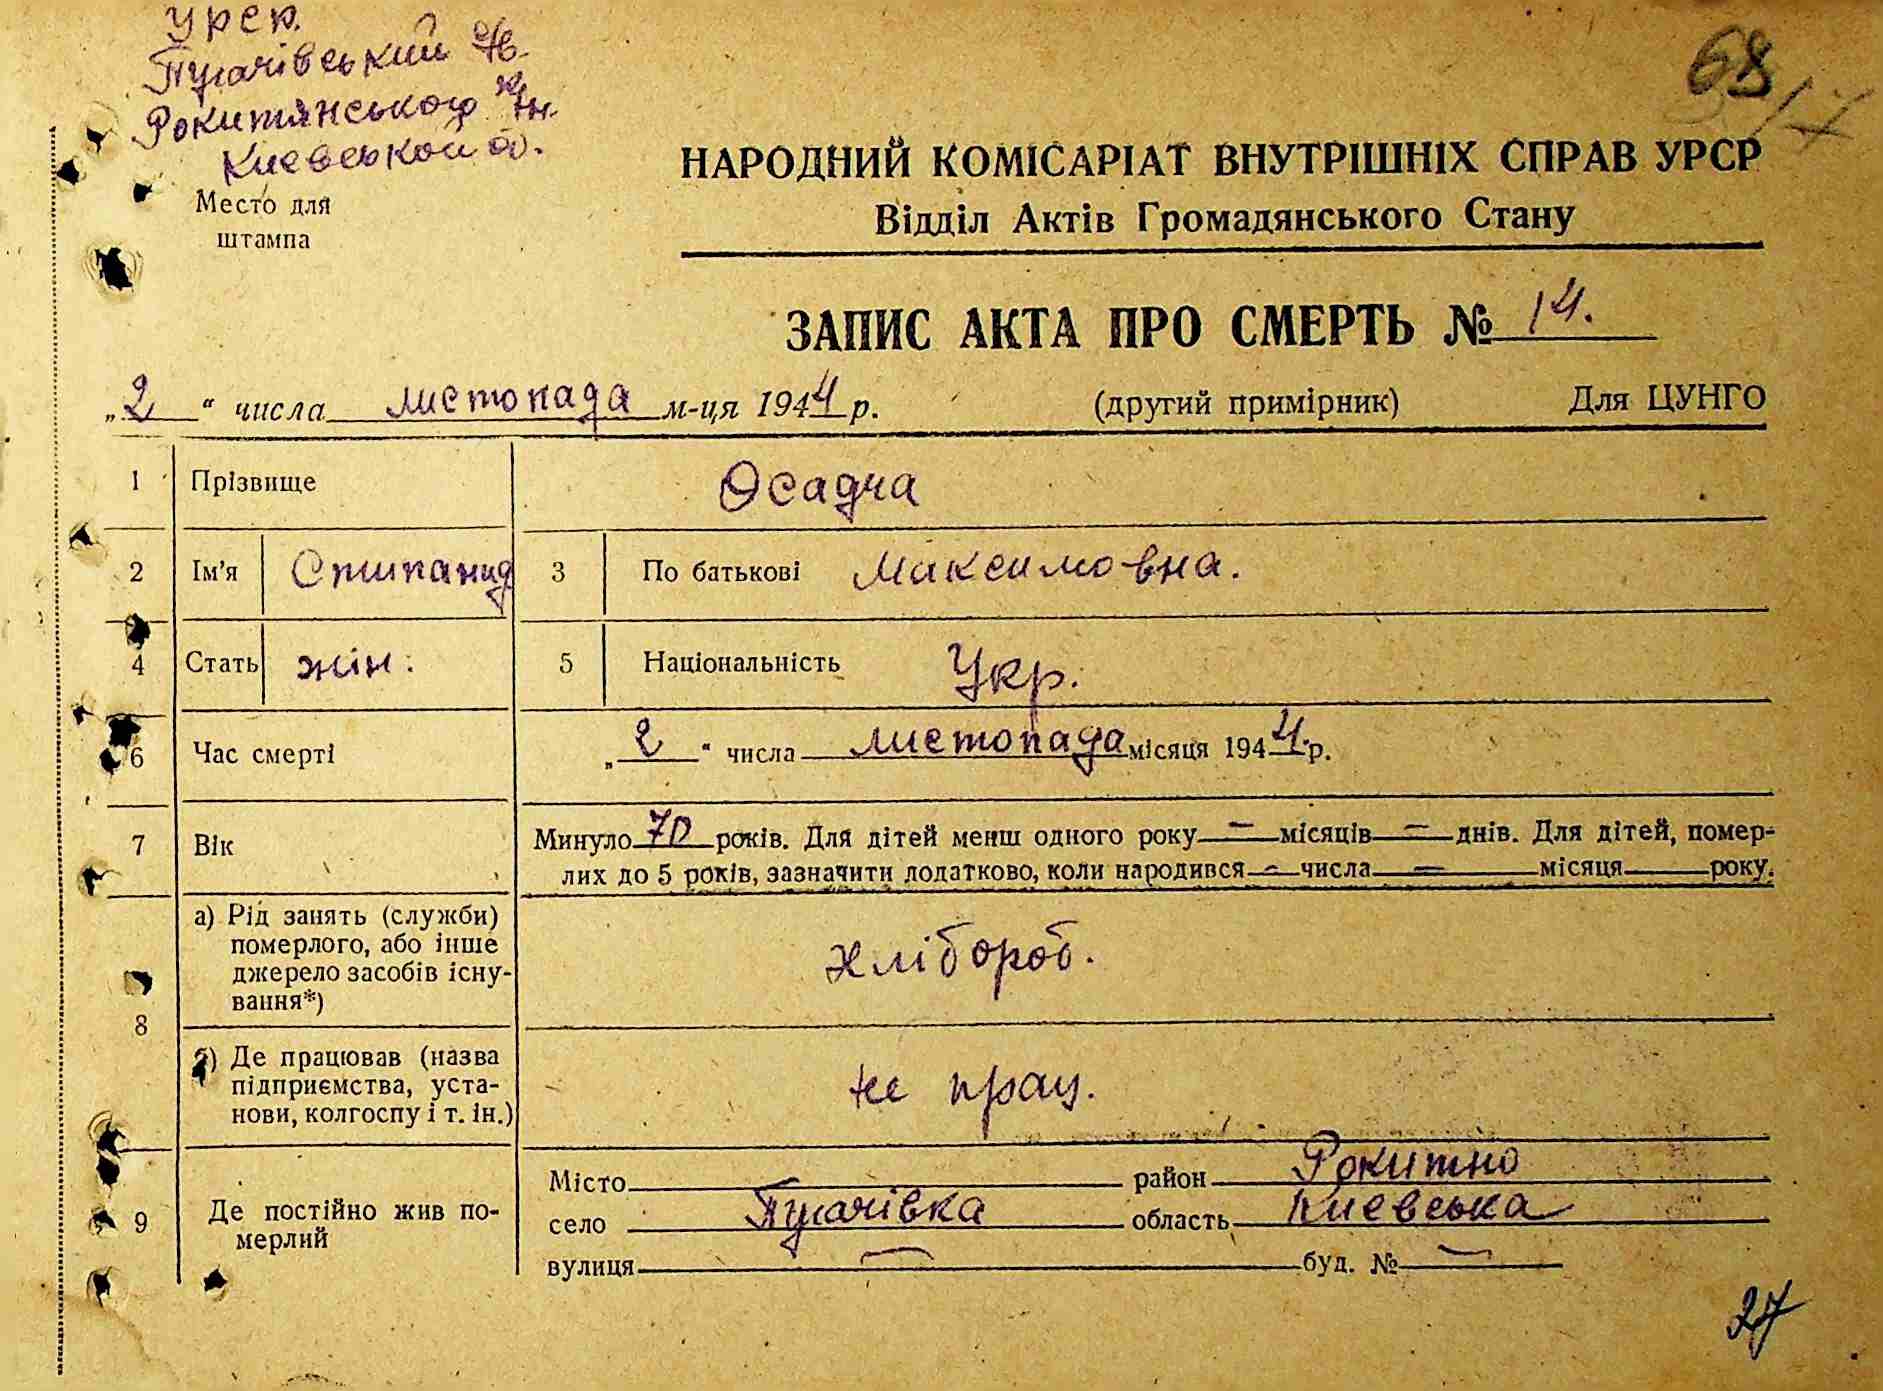 УРСР.
Пугачівський с/в.
Рокитянського р/нн.
Киевськой об.
Место для
штампа
68/7
НАРОДНИЙ КОМІСАРІАТ ВНУТРІШНІХ СПРАВ УРСР
Відділ Актів Громадянського Стану
ЗАПИС АКТА ПРО СМЕРТЬ № 14.
„2“ числа листопада м-ця 1944 р. (другий примірник) Для ЦУНГО
1 Прізвище Осадча
2 Ім’я Стипанид 3 По батькові Максимовна.
4 Стать жін. 5 Національність Укр.
6 Час смерті „2“ числа листопада місяця 1944 р.
7 Вік Минуло 70 років. Для дітей менш одного року — місяців — днів. Для дітей, помер-
лих до 5 років, зазначити додатково, коли народився — числа — місяця року.
8 а) Рід занять (служби)
померлого, або інше
джерело засобів існу-
вання*)
хлібороб.
б) Де працював (назва
підприємства, уста-
нови, колгоспу і т. ін.)
не прац.
9 Де постійно жив по-
мерлий
Місто район Рокитно
село Пугачівка область Киевська
вулиця — буд. № —
27